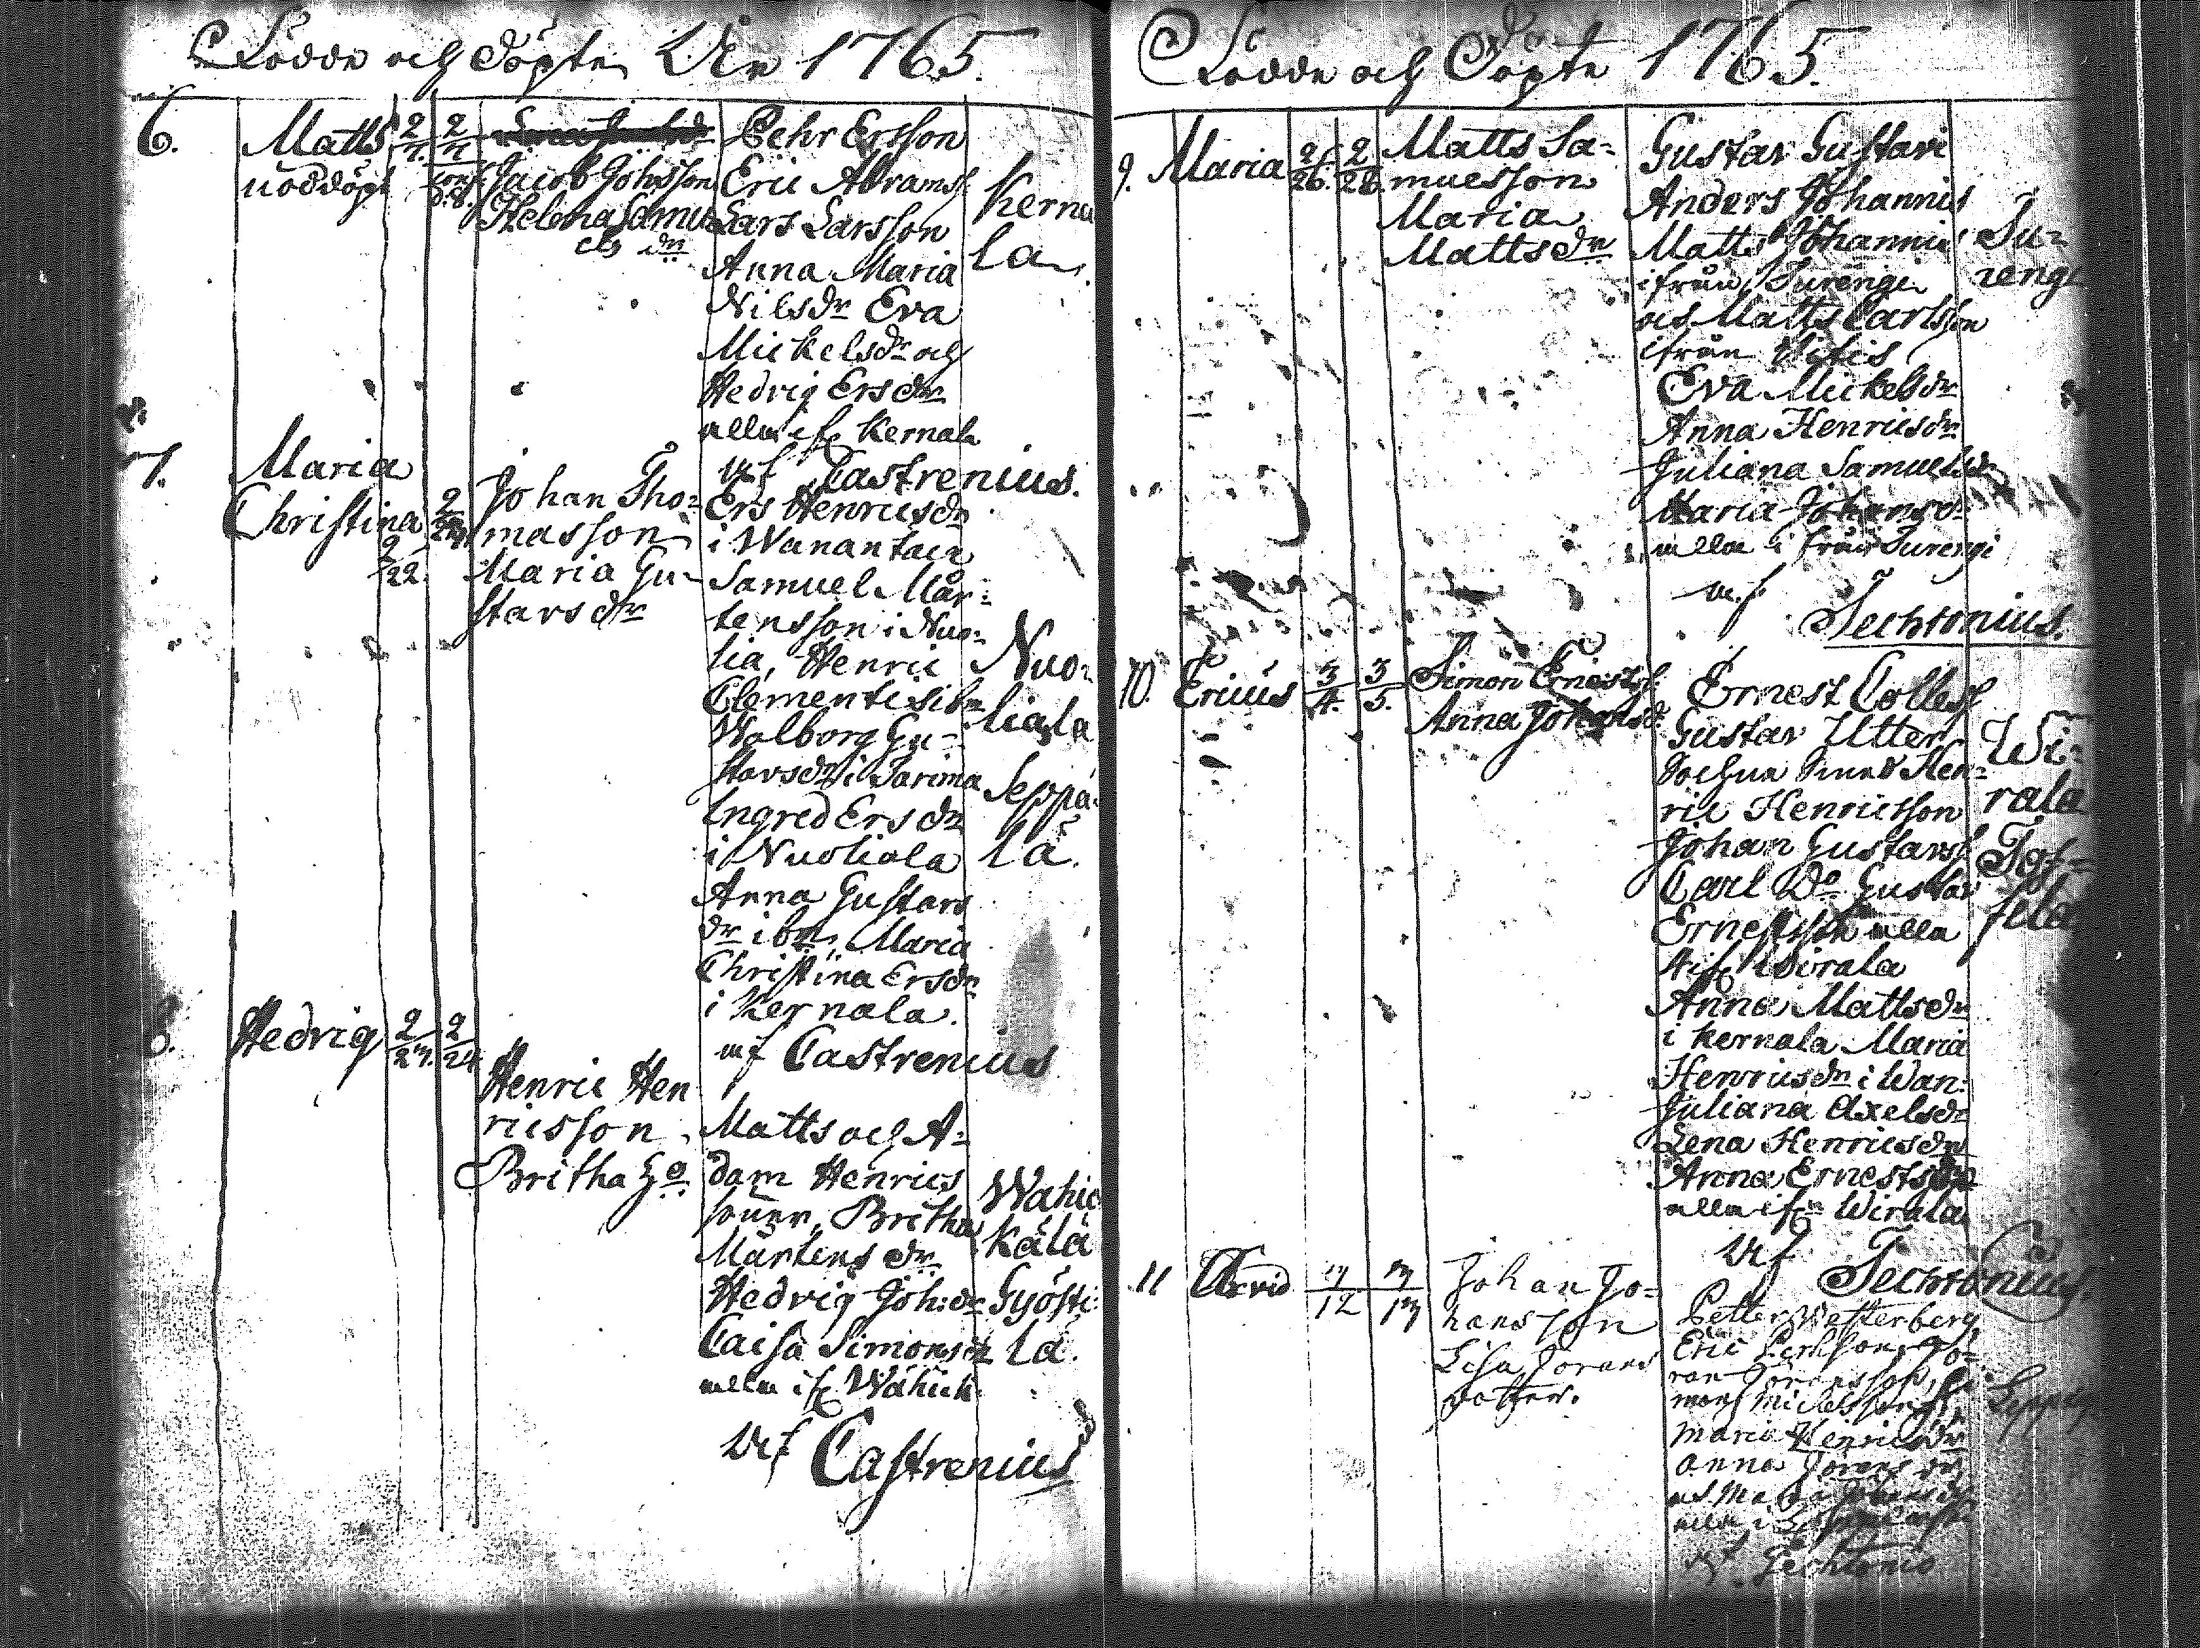 Födde och Döpte År 1765.
6.
Matts
nöddöpt
2/7.
2/7
conf.
d. 8.
Jacob Johsson
Helena Samu
els dr
Pehr Ersson
Eric Abramss.
Lars Larsson
Anna Maria
Nilsdr Eva
Mickelsdr och
Hedvig Ersdr
alla ifr Kernala
Kerna
la.
7.
Maria
Christina
2/22.
2/24
Johan Tho=
masson
Maria Gu-
stavsdr
Castrenius.
Ers Henricsdr
i Wanantaca
Samuel Mår=
tensson i Nuo=
lia, Henric
Clementis ibm
Walborg Gu-
stavsdr i Tarima
Ingred Ersdr
i Nuoliala
Anna Gustavs
dr ibm, Maria
Christina Ersdr
i Kernala.
Nuo=
liala
Seppä=
lä.
mf Castrenius
8.
Hedvig
2/23.
2/24
Henric Hen
ricsson
Britha
Matts och A=
dam Henrics
söner, Britha
Mårtens dr
Hedvig Joh:dr
Caisa Simonsdr
alla ifr Wähick.
Wahic
kälä
Gyösti=
lä.
Castrenius
Födde och Döpte 1765.
9.
Maria
2/26.
2/28.
Matts Sa=
muelsson
Maria
Mattsdr
Gustav Gustavi
Anders Johannis
Matts Johannis
ifrån Turengi
Matts Carlsson
ifrån
Eva Mickelsdr
Anna Henricsdr
Juliana Samuelsdr
Maria Johansdr
alla ifrån Turengi
Tu=
rengi
m.f.
Techtonius.
10.
Ericus
3/4.
3/5.
Simon Ernests.
Anna Johansd.
Ernest
Gustav Utter
Hen=
ric Henricsson
Johan Gustavss.
Carl Do Gustav
Ernestsson alla
ifr Wirala
Anna Mattsdr
i Kernala Maria
Henricsdr i Wan:
Juliana Axelsdr
Lena Henricsdr
Anna Ernestsdr
alla ifr Wirala
Wi=
rala
Techtonius.
11
Arvid
3/12
3/13
Johan Jo=
hansson
Lisa Jorans
dotter.
Petter Westerberg
Eric Jo=
ran Joransson, Si
mon Michelsson
Maria Henricsdr
Anna Jorans dr